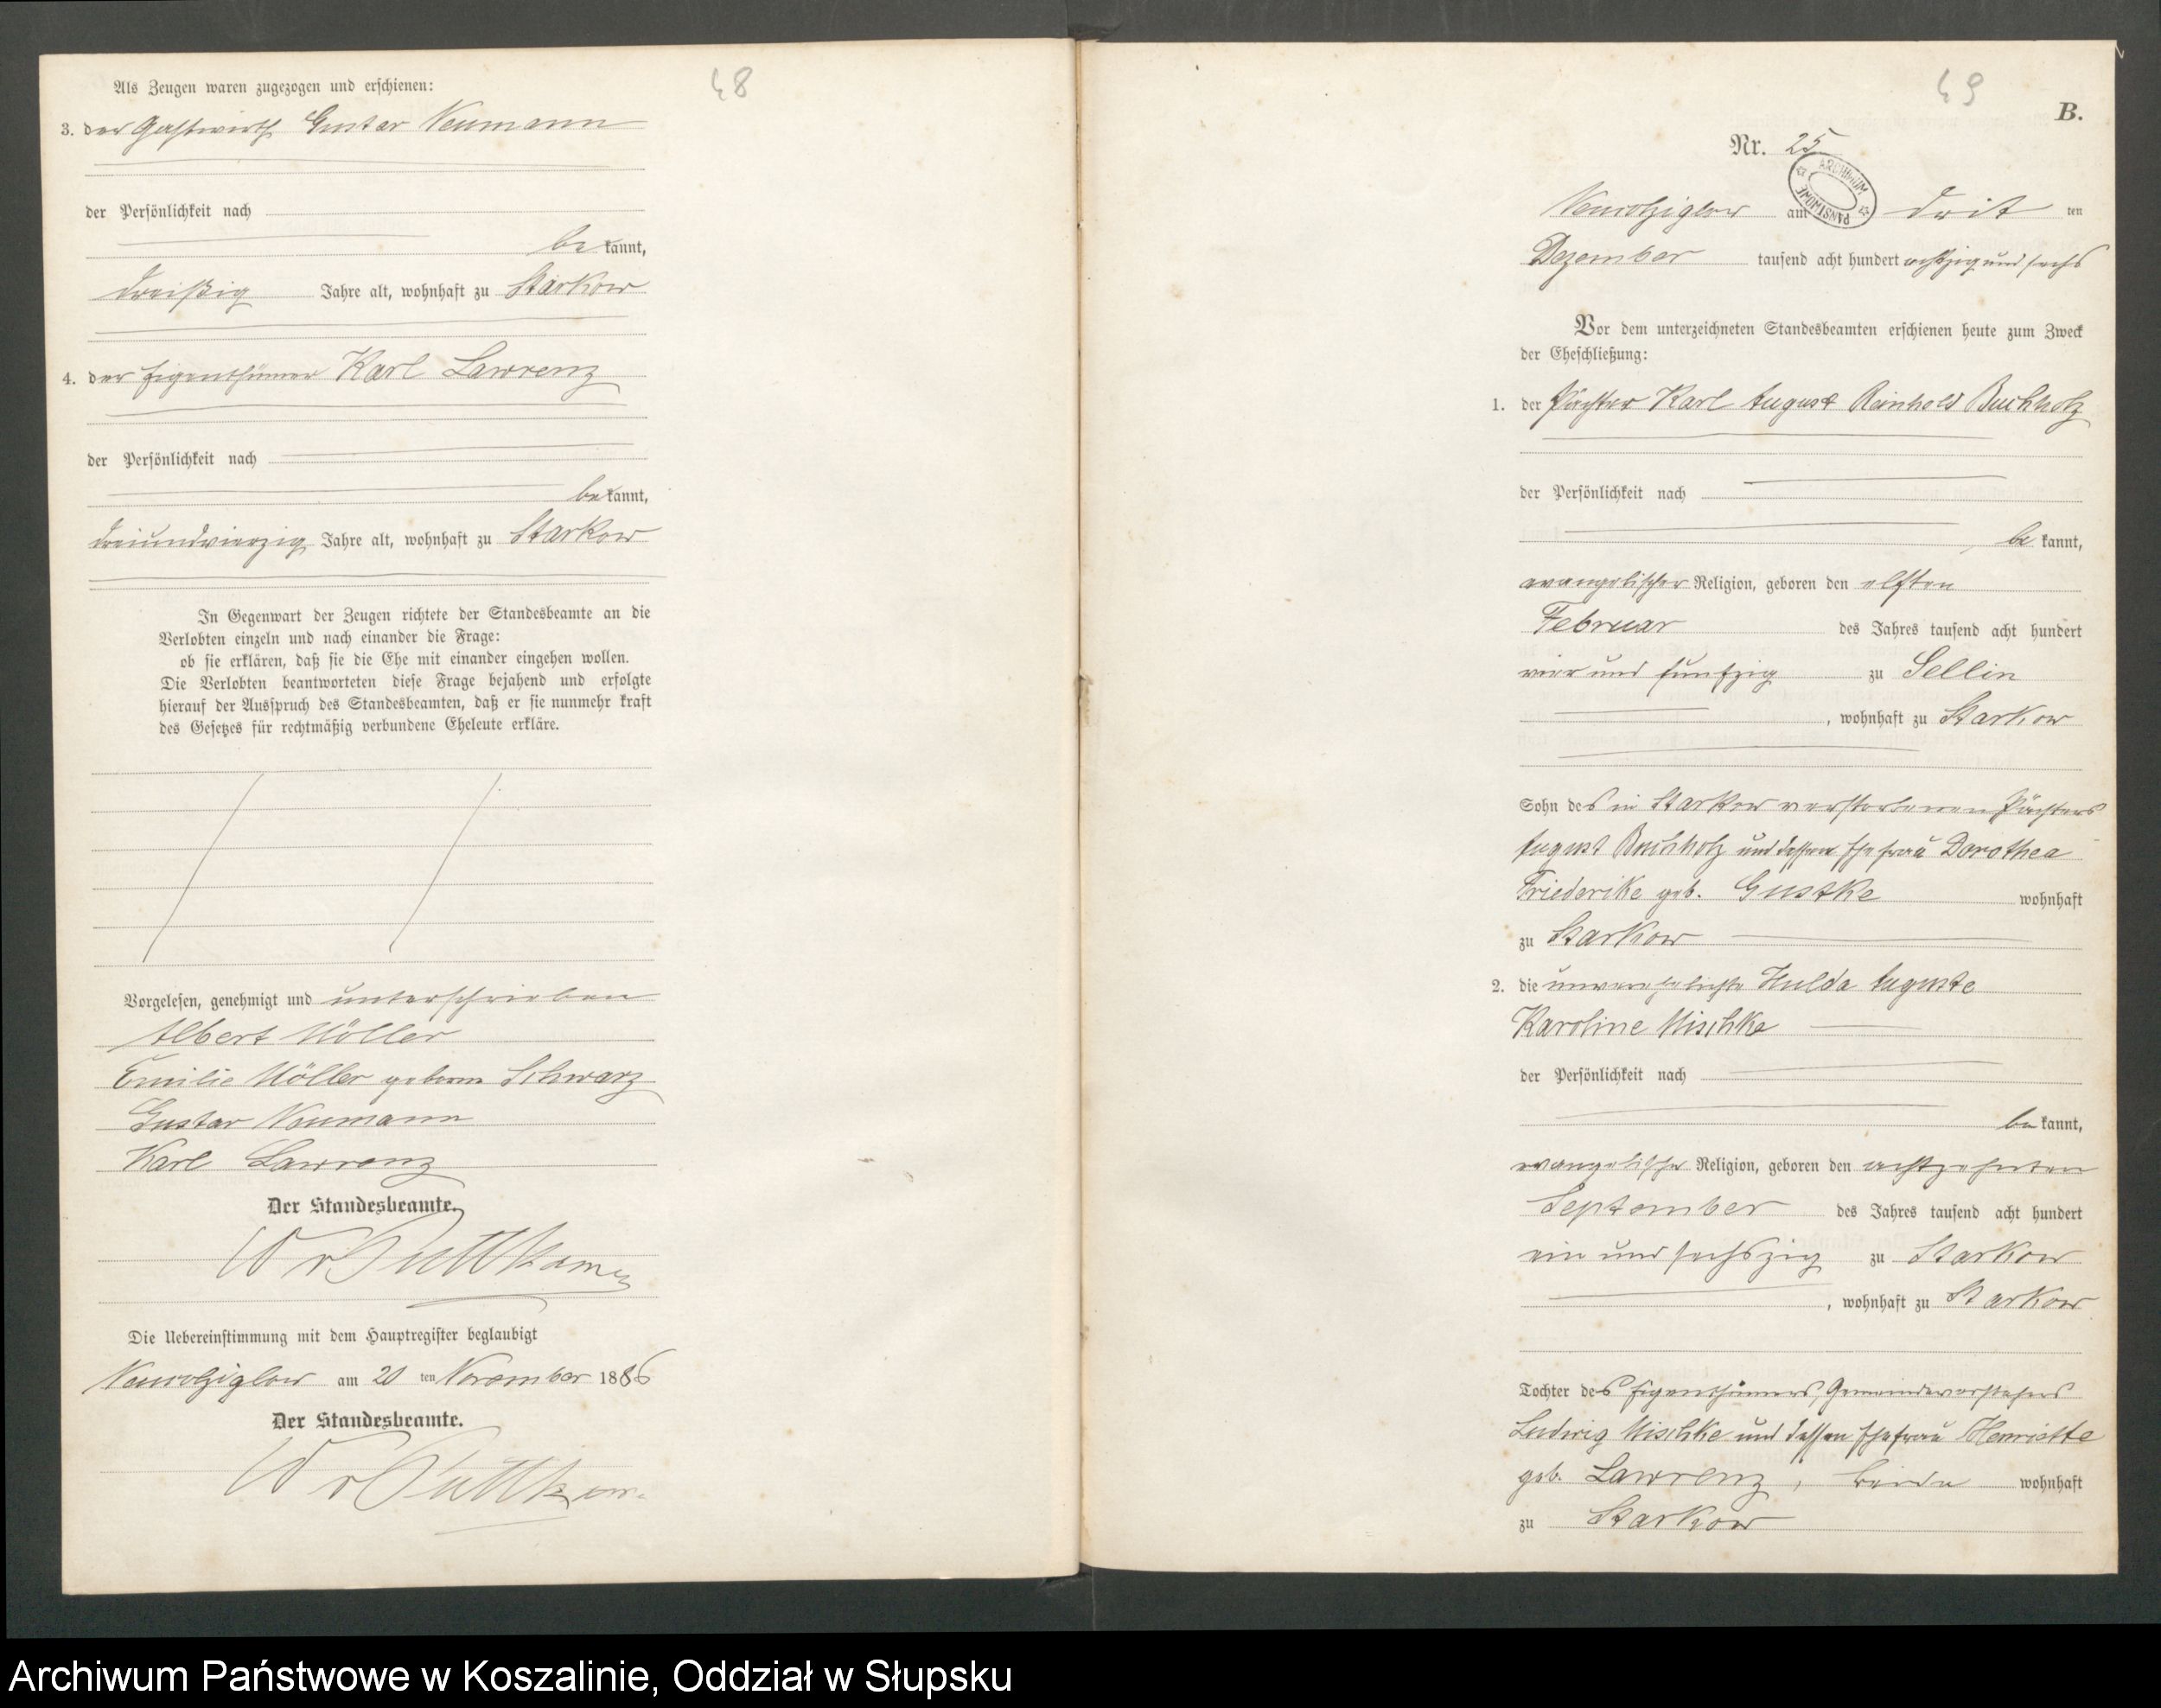 48
Als Zeugen waren zugezogen und erschienen:
3. der Gastwirth Gustav Neumann
der Persönlichkeit nach
be kannt,
dreißig Jahre alt, wohnhaft zu Starkow
4. der Eigenthümer Karl Lawrenz
der Persönlichkeit nach
be kannt,
dreiundvierzig Jahre alt, wohnhaft zu Starkow
In Gegenwart der Zeugen richtete der Standesbeamte an die
Verlobten einzeln und nach einander die Frage:
ob sie erklären, daß sie die Ehe mit einander eingehen wollen.
Die Verlobten beantworteten diese Frage bejahend und erfolgte
hierauf der Ausspruch des Standesbeamten, daß er sie nunmehr kraft
des Gesetzes für rechtmäßig verbundene Eheleute erkläre.
Vorgelesen, genehmigt und unterschrieben
Albert Möller
Emilie Möller geborne Schwarz
Gustav Neumann
Karl Lawrenz
Der Standesbeamte.
W v Puttkamer
Die Uebereinstimmung mit dem Hauptregister beglaubigt
Neuwolziglow am 20 ten November 1886
Der Standesbeamte.
W v Puttkamer
49
B.
Nr. 25
ARCHIWUM PAŃSTWOWE
Neuwolziglow am drit ten
Dezember tausend acht hundert achtzig und sechs
Vor dem unterzeichneten Standesbeamten erschienen heute zum Zweck
der Eheschließung:
1. der Pächter Karl August Reinhold Buchholz
der Persönlichkeit nach
be kannt,
evangelischer Religion, geboren den elften
Februar des Jahres tausend acht hundert
vier und funfzig zu Sellin
, wohnhaft zu Starkow
Sohn des in Starkow verstorbenen Pächters
August Buchholz und dessen Ehefrau Dorothea
Friederike geb. Gustke wohnhaft
zu Starkow
2. die unverehelichte Hulda Auguste
Karoline Mischke
der Persönlichkeit nach
be kannt,
evangelischer Religion, geboren den achtzehnten
September des Jahres tausend acht hundert
ein und sechszig zu Starkow
, wohnhaft zu Starkow
Tochter des Eigenthümers, Gemeindevorstehers
Ludwig Mischke und dessen Ehefrau Henriette
geb. Lawrenz, beide wohnhaft
zu Starkow
Archiwum Państwowe w Koszalinie, Oddział w Słupsku